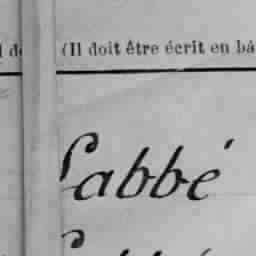 (Il doit être écrit en bâ
Labbé